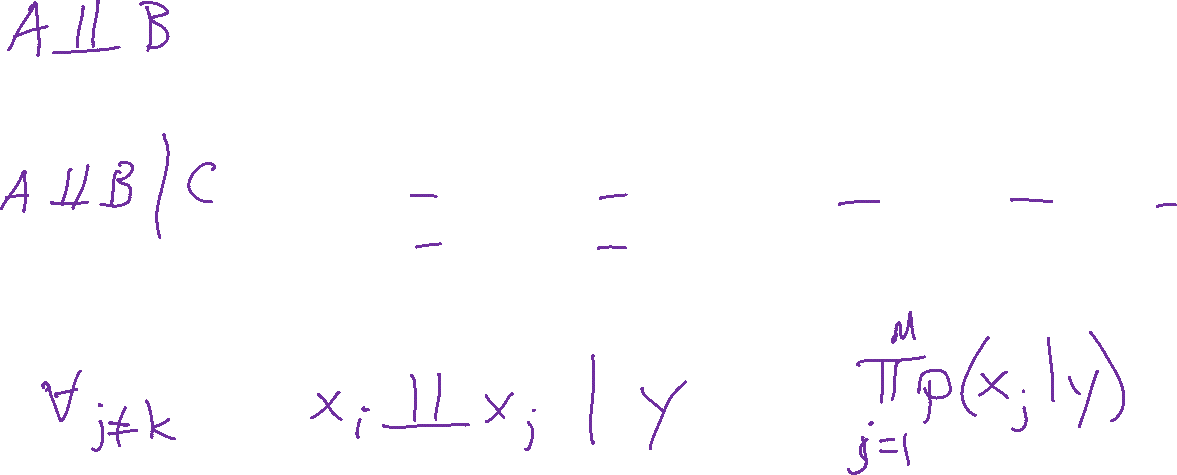 A ⫫ B
A ⫫ B | C
∀ j≠k x_i ⫫ x_j | y ∏_{j=1}^{M} p(x_j | y)